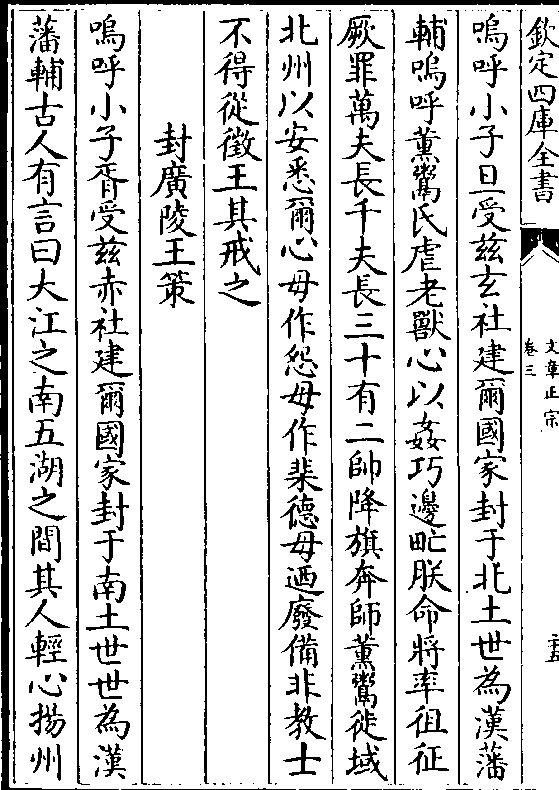 欽定四庫全書
文章正宗
卷三
二十五
嗚呼小子旦受茲玄社建爾國家封于北土世為漢藩
輔嗚呼薰鬻氏虐老獸心以姦巧邊甿朕命將率徂征
厥罪萬夫長千夫長三十有二帥降旗奔師薰鬻徙域
北州以安悉爾心毋作怨毋作棐德毋廼廢備非教士
不得從徵王其戒之
封廣陵王策
嗚呼小子胥受茲赤社建爾國家封于南土世世為漢
藩輔古人有言曰大江之南五湖之間其人輕心揚州